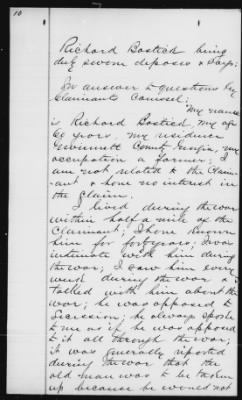 10
Richard Bostick being
duly sworn deposes & says;
In answer to questions by
Claimants Counsel;
My name
is Richard Bostick, my age
60 years, my residence
Gwinnett County Georgia, my
occupation a farmer; I
am not related to the Claim-
-ant & have no interest in
the Claim.
I lived during the war
within half a mile of the
Claimant; I have known
him for forty years; I was
intimate with him during
the war; I saw him every
week during the war &
talked with him about the
war; he was opposed to
Secession; he always spoke
to me as if he was opposed
to it all through the war;
it was generally reported
during the war that the
old man was to be taken
up because he would not